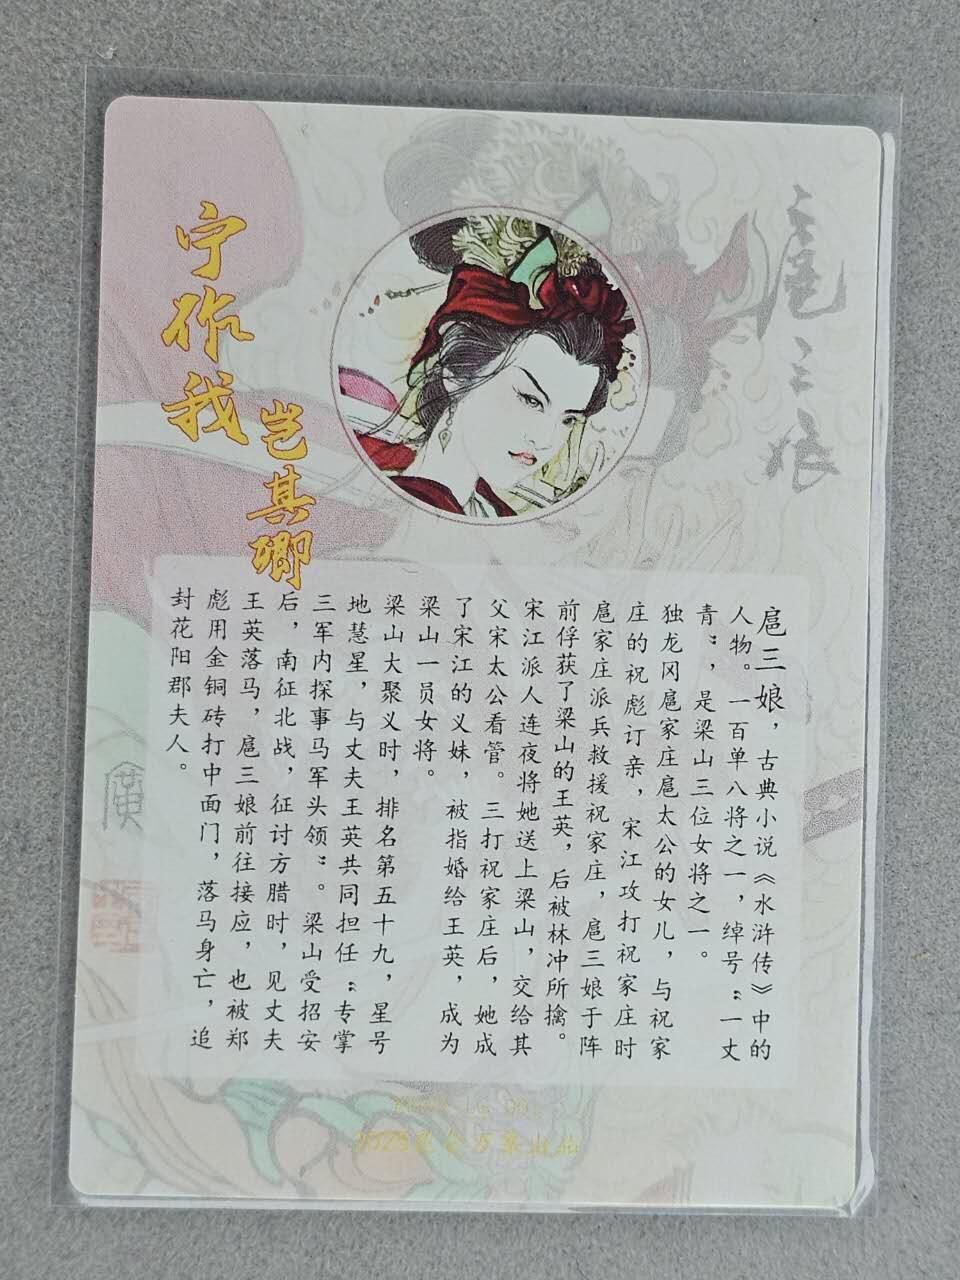 扈三娘
宁作我
岂其卿
扈三娘，古典小说《水浒传》中的
人物。一百单八将之一，绰号“一丈
青”，是梁山三位女将之一。
独龙冈扈家庄扈太公的女儿，与祝家
庄的祝彪订亲，宋江攻打祝家庄时
扈家庄派兵救援祝家庄，扈三娘于阵
前俘获了梁山的王英，后被林冲所擒。
宋江派人连夜将她送上梁山，交给其
父宋太公看管。三打祝家庄后，她成
了宋江的义妹，被指婚给王英，成为
梁山一员女将。
梁山大聚义时，排名第五十九，星号
地慧星，与丈夫王英共同担任“专掌
三军内探事马军头领”。梁山受招安
后，南征北战，征讨方腊时，见丈夫
王英落马，扈三娘前往接应，也被郑
彪用金铜砖打中面门，落马身亡，追
封花阳郡夫人。